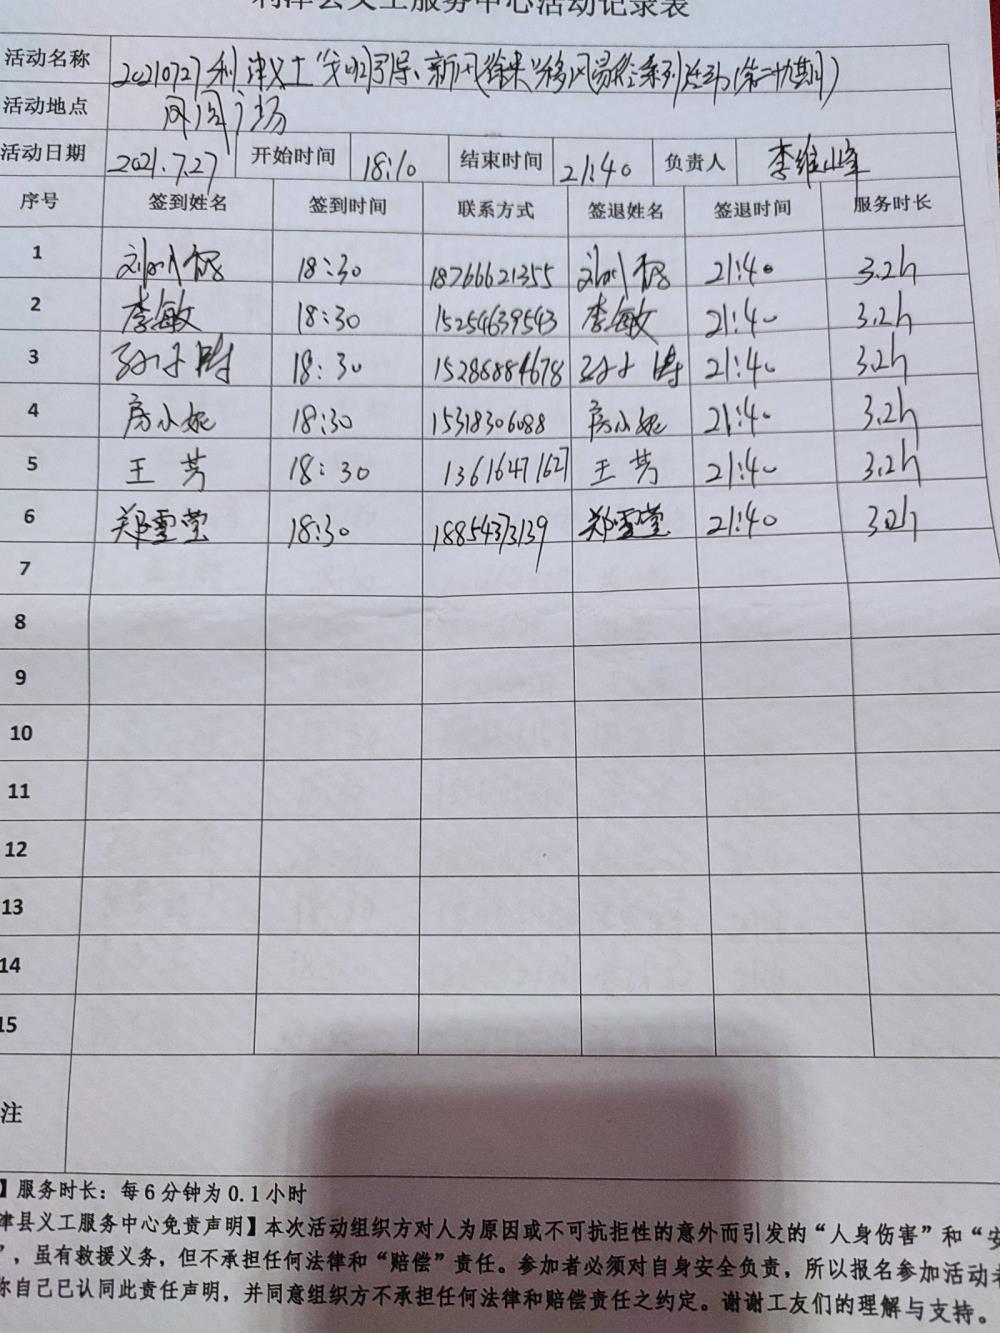 利津县义工服务中心活动记录表
活动名称 20210727利津义工"文明引导、新风徐来"移风易俗系列活动(第二十九期)
活动地点 凤凰广场
活动日期 2021.7.27 开始时间 18:10 结束时间 21:40 负责人 李维峰
序号 签到姓名 签到时间 联系方式 签退姓名 签退时间 服务时长
1 18:30 18766621355 21:40 3.2h
2 李敏 18:30 15254639543 李敏 21:40 3.2h
3 18:30 15286884678 21:40 3.2h
4 房小妮 18:30 15318306088 房小妮 21:40 3.2h
5 王芳 18:30 13616471627 王芳 21:40 3.2h
6 郑雪莹 18:30 18854373139 郑雪莹 21:40 3.2h
7
8
9
10
11
12
13
14
15
注
】服务时长：每6分钟为0.1小时
津县义工服务中心免责声明】本次活动组织方对人为原因或不可抗拒性的意外而引发的“人身伤害”和“安
”，虽有救援义务，但不承担任何法律和“赔偿”责任。参加者必须对自身安全负责，所以报名参加活动者
你自己已认同此责任声明，并同意组织方不承担任何法律和赔偿责任之约定。谢谢工友们的理解与支持。